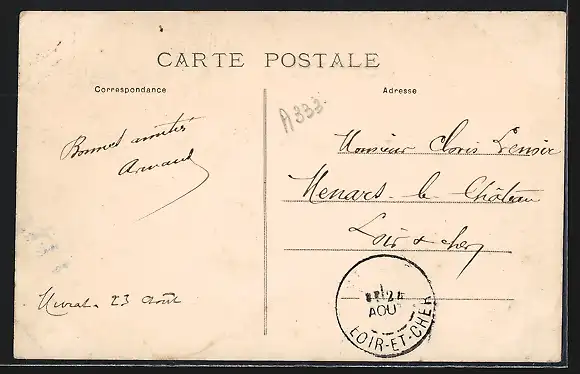 CARTE POSTALE
Correspondance
Adresse
A333
Bonnes amitiés
Armand
Monsieur Cloris Lenoir
Menars-le-Château
Loir & cher
23 Août
AOU
LOIR-ET-CHER